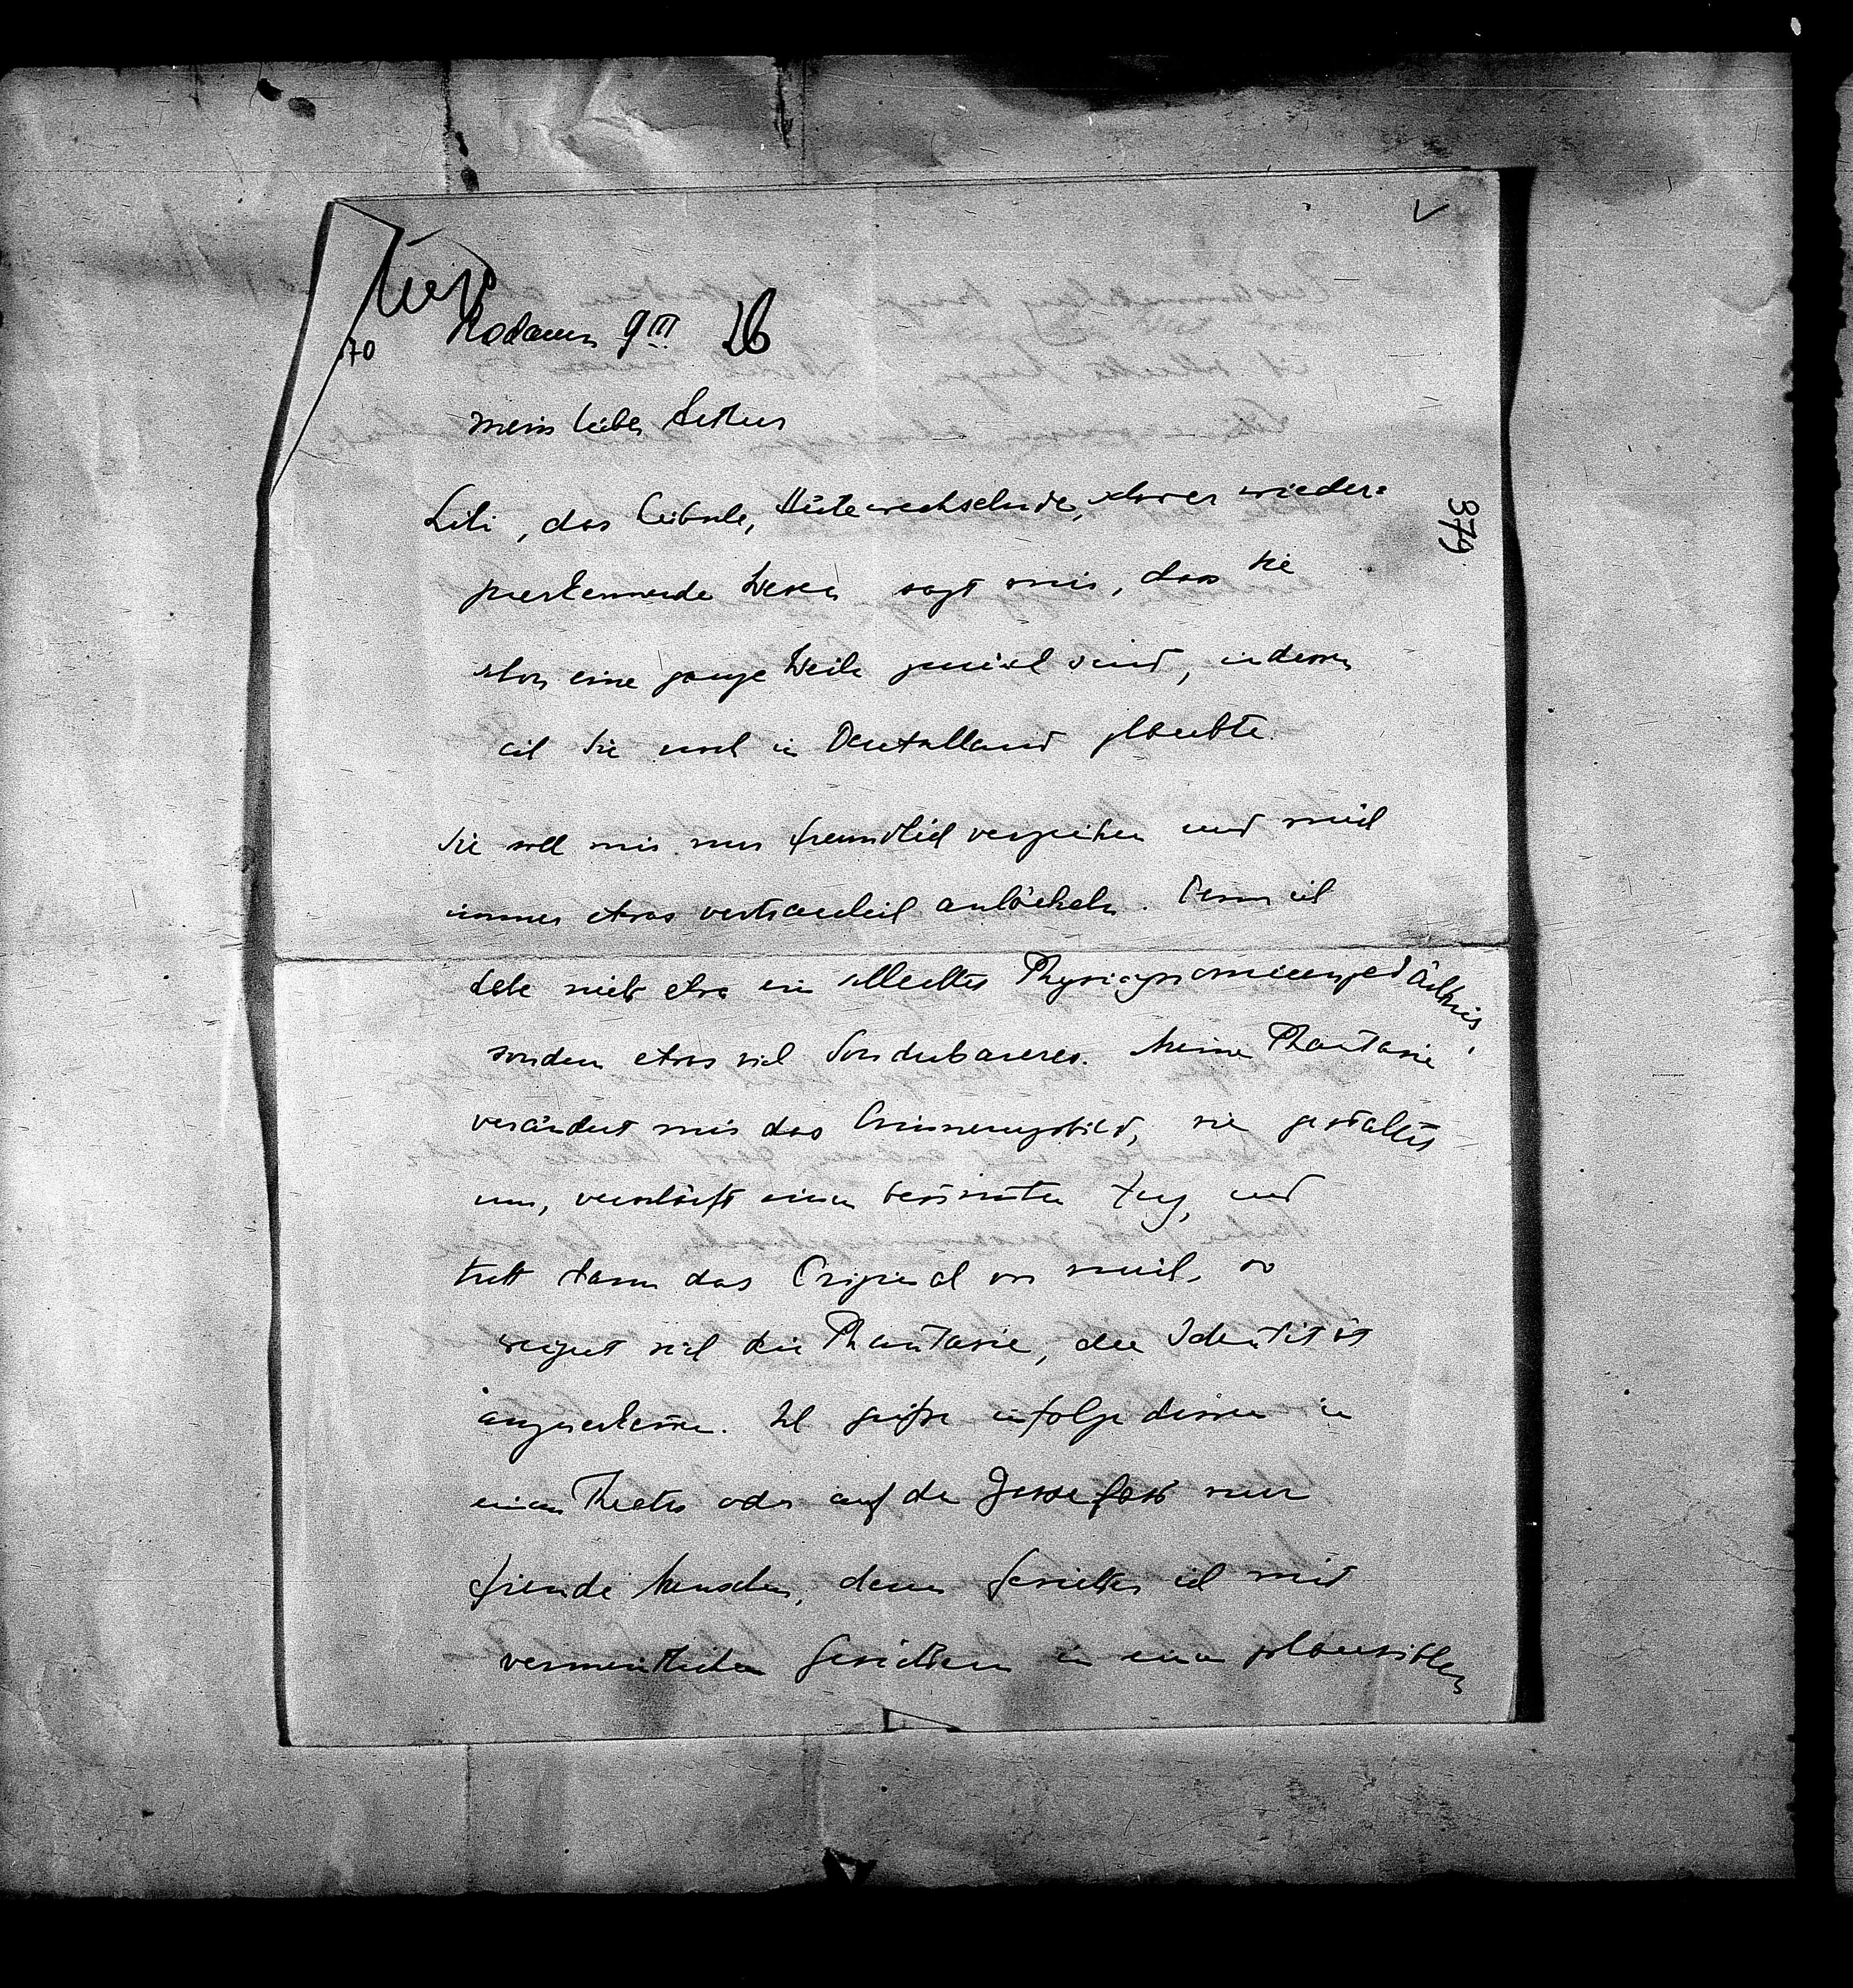 Rodaun 9 III 26
70
379
mein lieber Arthur
Lili, das liebende, Hütewechselnde, schwer wieder=
zuerkennende Wesen sagt mir, dass Sie
schon eine ganze Weile zurück sind, indessen
ich Sie noch in Deutschland glaubte.
Sie soll mir nur freundlich verzeihen und mich
immer etwas vertraulich anlächeln. Denn ich
habe nicht etwa ein schlechtes Physiognomieengedächtnis,
sondern etwas viel Sonderbareres. Meine Phantasie
verändert mir das Erinnerungsbild, sie gestaltet
um, verschärft einen bestimmten Zug, und
tritt dann das Original vor mich, so
weigert sich die Phantasie, die Identität
anzuerkennen. Ich grüße infolge dessen in
einem Theater oder auf der Gasse fast nur
fremde Menschen, deren Gesichter ich mit
vermeintlichen Gesichtern in einen plausiblen